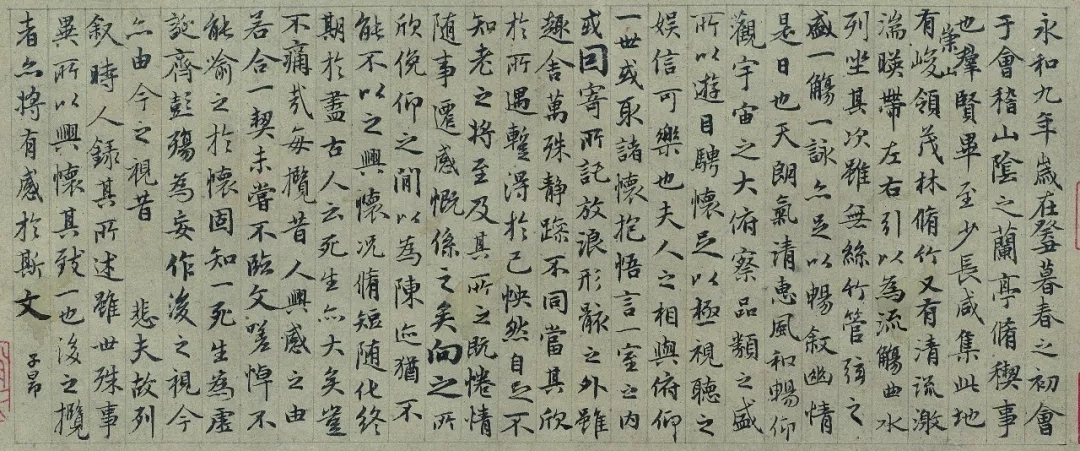 永和九年歲在癸丑暮春之初會
于會稽山陰之蘭亭脩稧事
也羣賢畢至少長咸集此地
有崇山峻領茂林脩竹又有清流激
湍暎帶左右引以為流觴曲水
列坐其次雖無絲竹管弦之
盛一觴一詠亦足以暢叙幽情
是日也天朗氣清惠風和暢仰
觀宇宙之大俯察品類之盛
所以遊目騁懷足以極視聽之
娛信可樂也夫人之相與俯仰
一世或取諸懷抱悟言一室之內
或因寄所託放浪形骸之外雖
趣舍萬殊静躁不同當其欣
於所遇蹔得於己怏然自足不
知老之將至及其所之既惓情
隨事遷感慨係之矣向之所
欣俛仰之間以為陳迹猶不
能不以之興懷況脩短隨化終
期於盡古人云死生亦大矣豈
不痛哉每攬昔人興感之由
若合一契未嘗不臨文嗟悼不
能喻之於懷固知一死生為虛
誕齊彭殤為妄作後之視今
亦由今之視昔 悲夫故列
叙時人錄其所述雖世殊事
異所以興懷其致一也後之攬
者亦將有感於斯文
子昂